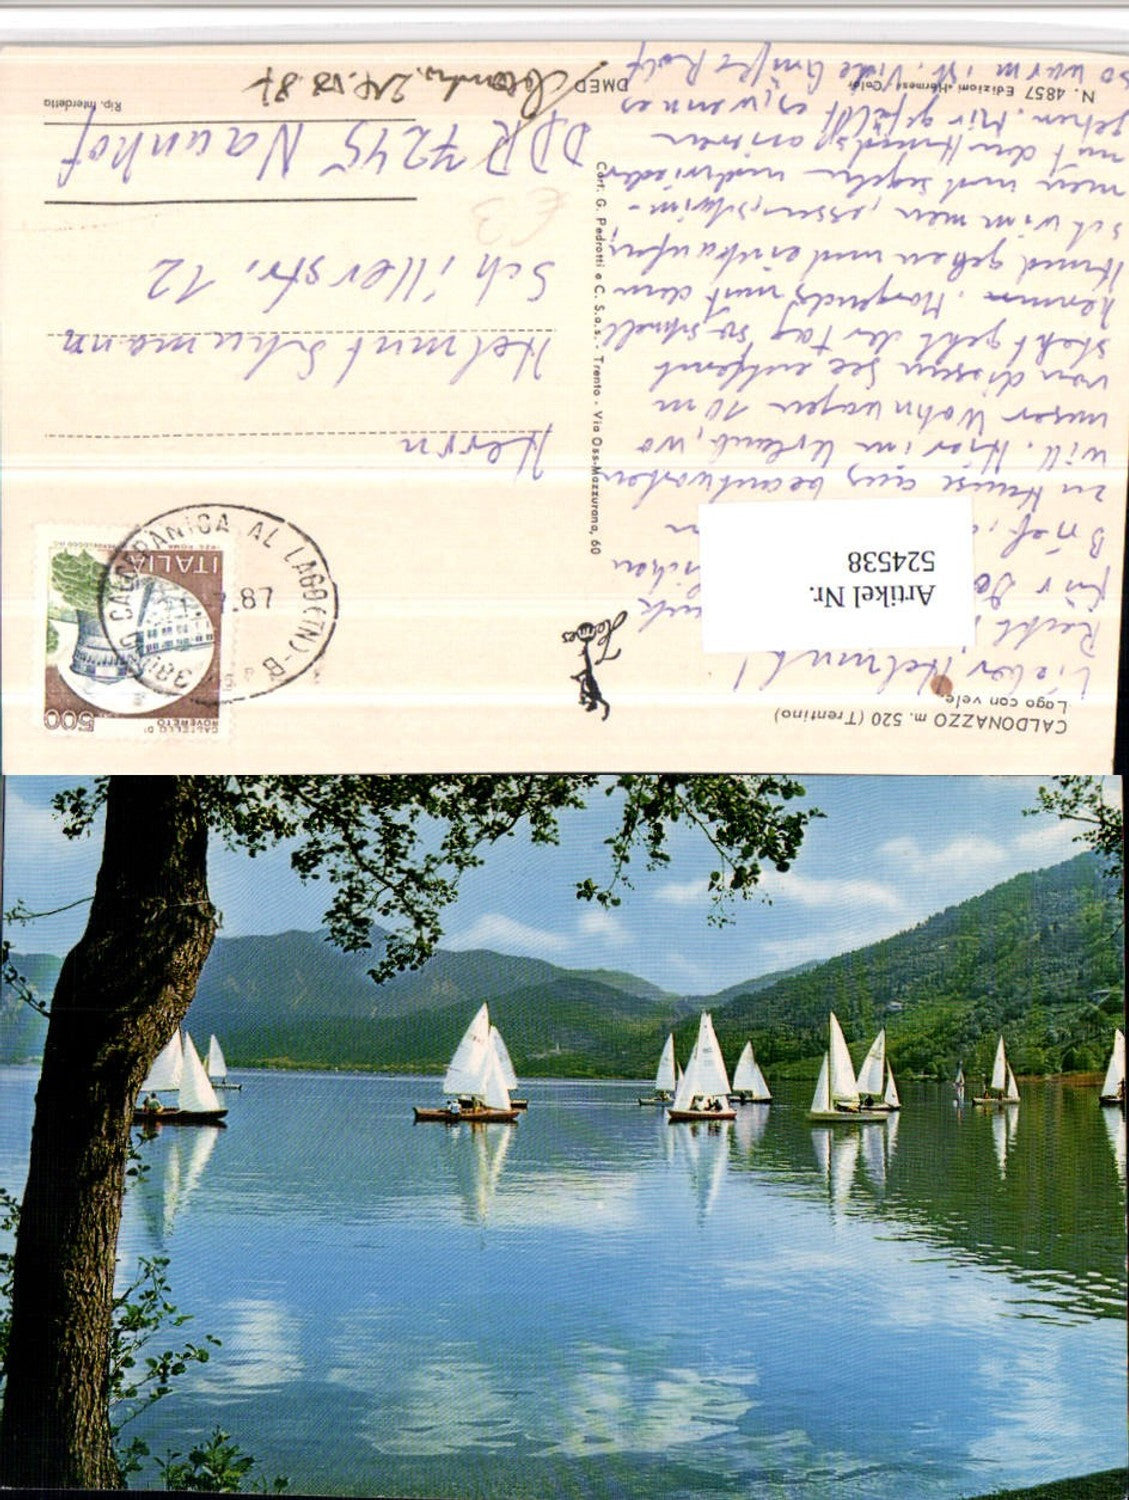 CALDONAZZO m. 520 (Trentino)
Lago con vele
Lieber Helmut!
Recht
für
Brief,
zu Hause aus beantworten
will. Hier im Urlaub, wo
unser Wohnwagen 10 m
von diesem See entfernt
steht geht der Tag so schnell
herum. Morgends mit dem
Hund gehen und einkaufen,
schwimmen, essen, schwim-
men und segeln und wieder
mit dem Hund spazieren
gehen. Mir gefällt es, wenn es
so warm ist. Viele Grüße Rolf
N. 4857 Edizioni «Hermes» Color
DMED
Artikel Nr.
524538
Hermes
Cart. G. Pedrotti e C. S.a.s. - Trento - Via Oss-Mazzurana, 60
500
CASTELLO DI
ROVERETO
ITALIA
CALCERANICA AL LAGO (TN) - B
380
.87
Herrn
Helmut Schumann
Schillerstr. 12
€3
DDR 7245 Naunhof
Rip. interdetta